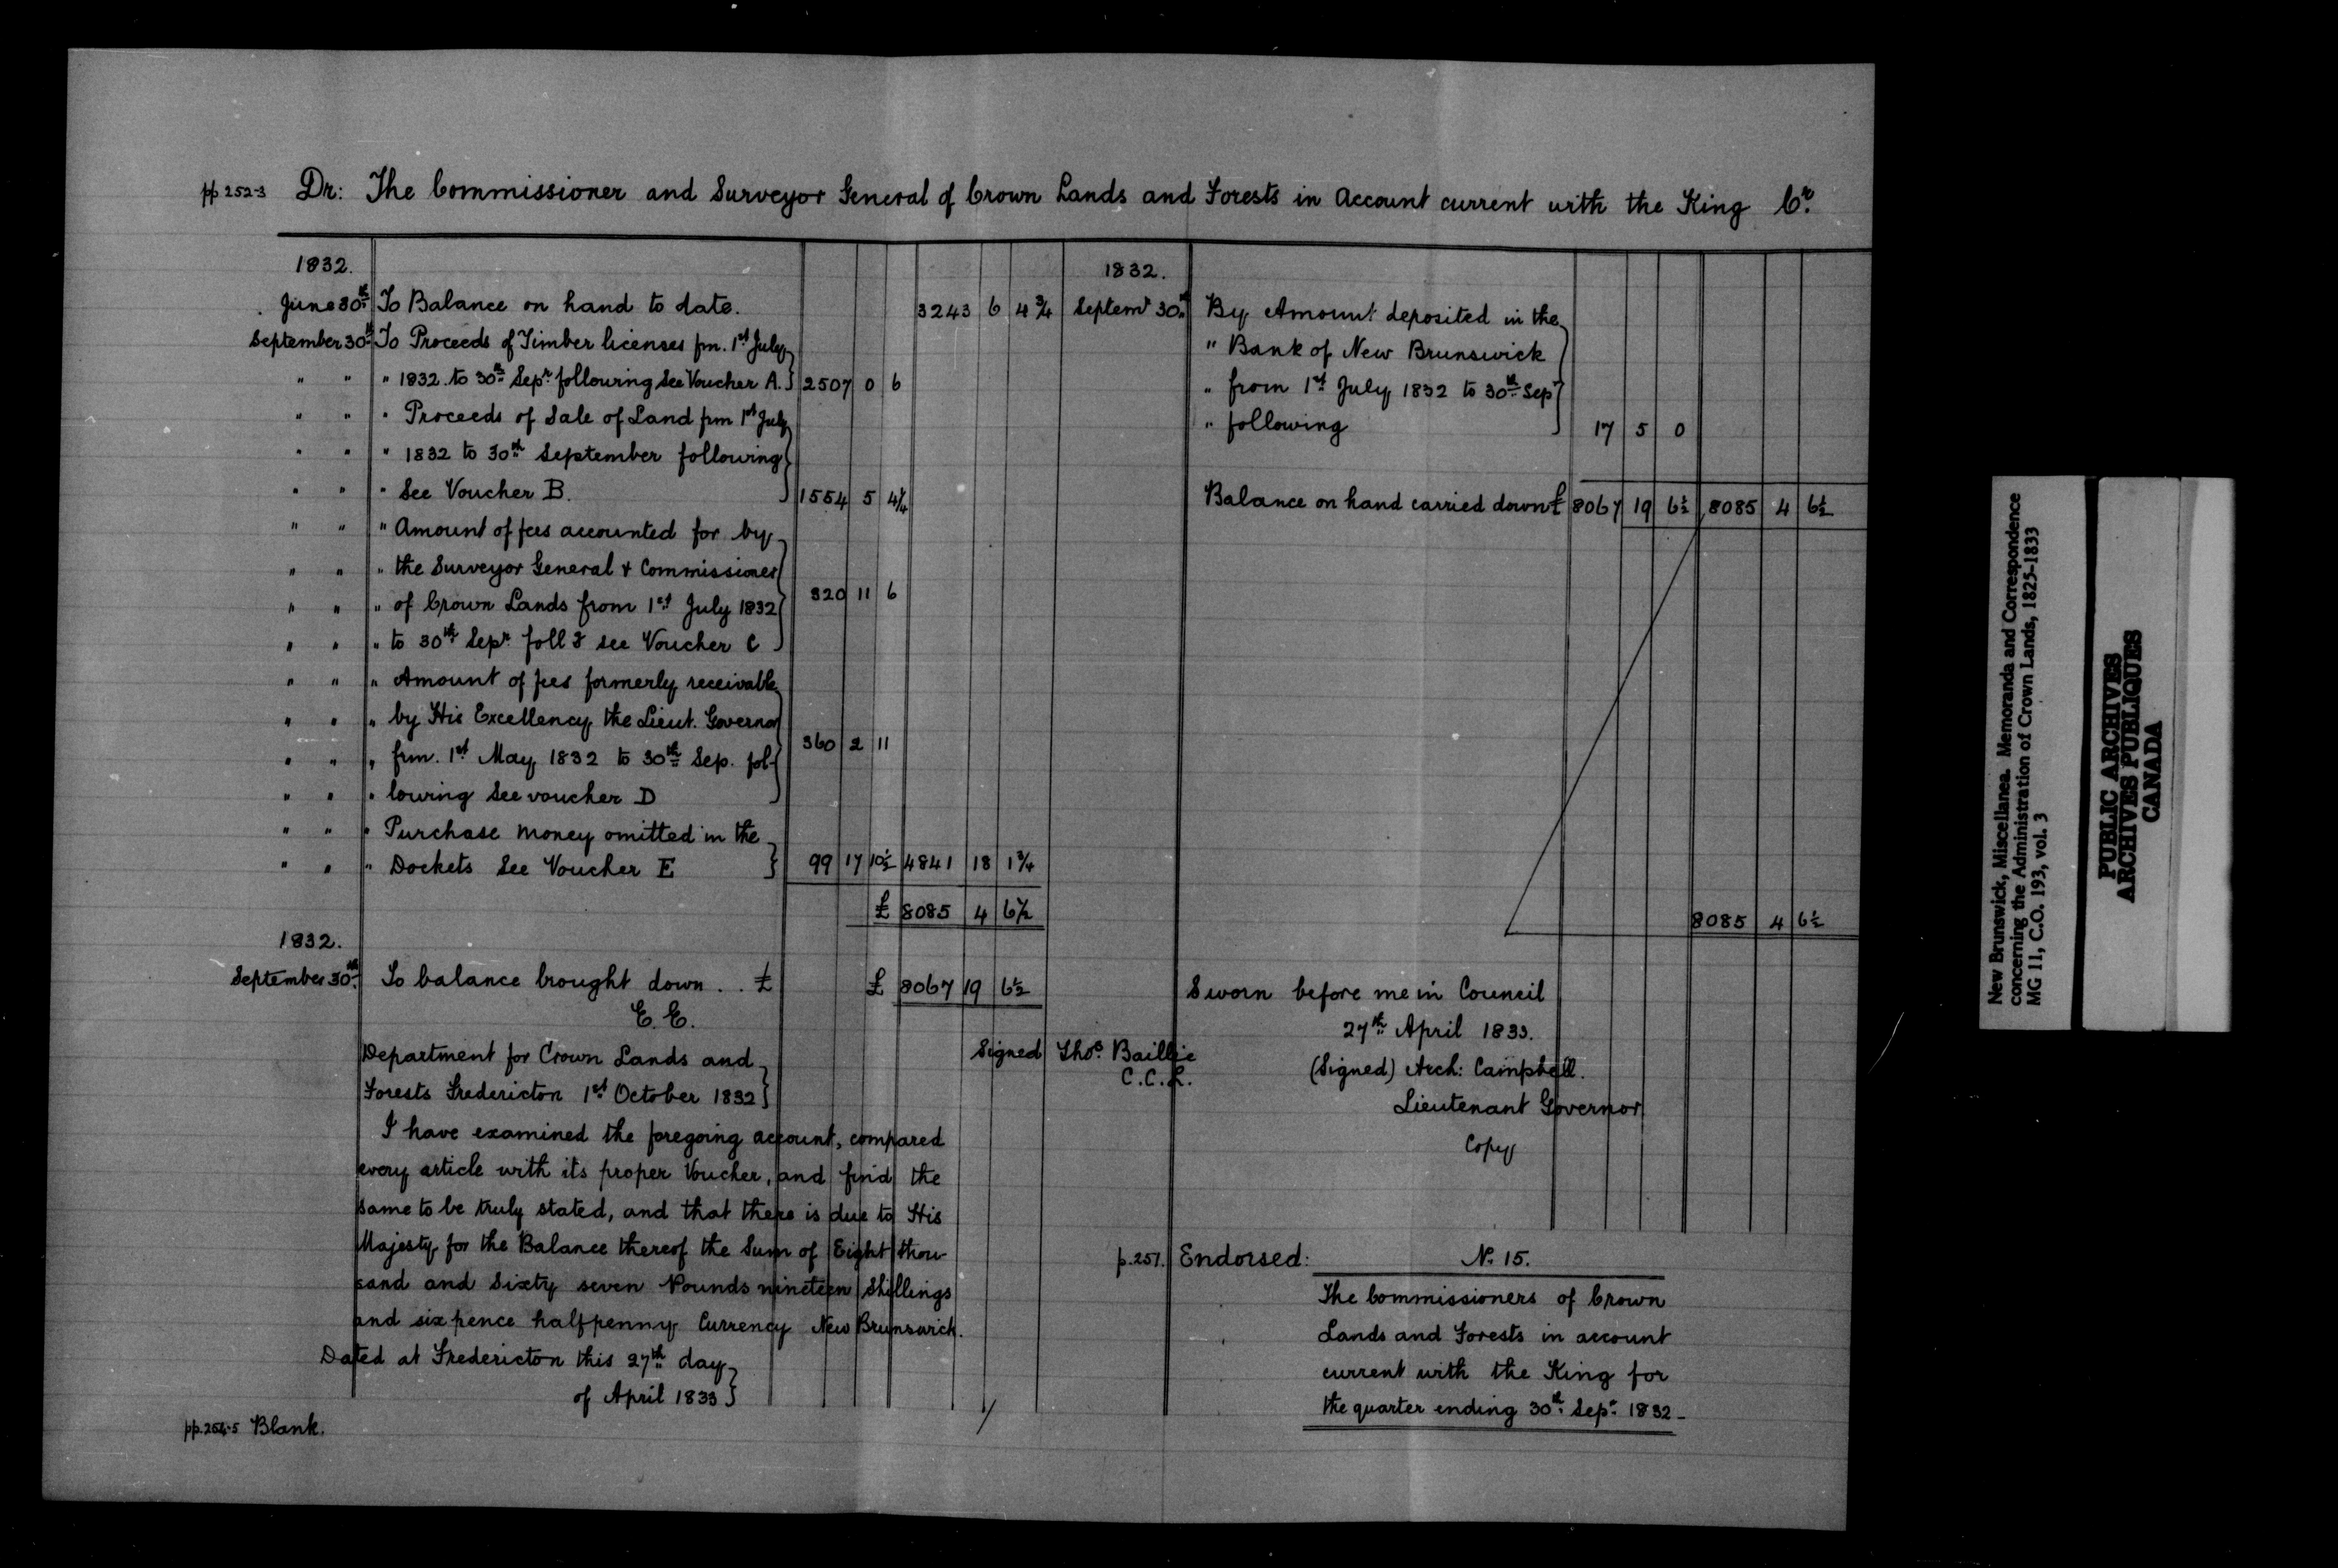 pp 252-3 Dr: The Commissioner and Surveyor General of Crown Lands and Forests in Account current with the King Cr.
1832.
June 30th To Balance on hand to date. 3243 6 4 3/4
September 30th To Proceeds of Timber licenses fm. 1st July
" " " 1832 to 30th Sepr following See Voucher A. } 2507 0 6
" " " Proceeds of Sale of Land frm 1st July
" " " 1832 to 30th September following
" " " See Voucher B. } 1554 5 4 1/4
" " " Amount of fees accounted for by
" " " the Surveyor General & Commissioner
" " " of Crown Lands from 1st July 1832 } 320 11 6
" " " to 30th Sepr. foll g see Voucher C
" " " Amount of fees formerly receivable
" " " by His Excellency the Lieut. Governor
" " " frm. 1st May 1832 to 30th Sep. fol- } 360 2 11
" " " lowing See voucher D
" " " Purchase money omitted in the
" " " Dockets See Voucher E } 99 17 10 1/2 4841 18 1 3/4
£ 8085 4 6 1/2
1832.
September 30th To balance brought down . . £ £ 8067 19 6 1/2
E. E.
Department for Crown Lands and
Forests Fredericton 1st October 1832 }
Signed Thos. Baillie
C.C.L.
I have examined the foregoing account, compared
every article with its proper Voucher, and find the
same to be truly stated, and that there is due to His
Majesty for the Balance thereof the Sum of Eight thou-
sand and Sixty seven Pounds nineteen Shillings
and six pence halfpenny Currency New Brunswick.
Dated at Fredericton this 27th day
of April 1833 }
pp. 254-5 Blank.
1832.
Septemr 30th By Amount deposited in the
" Bank of New Brunswick
" from 1st July 1832 to 30th Sepr
" following } 17 5 0
Balance on hand carried down £ 8067 19 6 1/2 8085 4 6 1/2
8085 4 6 1/2
Sworn before me in Council
27th April 1833.
(Signed) Arch: Campbell.
Lieutenant Governor
Copy
p. 251. Endorsed: No. 15.
The Commissioners of Crown
Lands and Forests in account
current with the King for
the quarter ending 30th Sepr. 1832_
New Brunswick, Miscellanea. Memoranda and Correspondence
concerning the Administration of Crown Lands, 1825-1833
MG 11, C.O. 193, vol. 3
PUBLIC ARCHIVES
ARCHIVES PUBLIQUES
CANADA